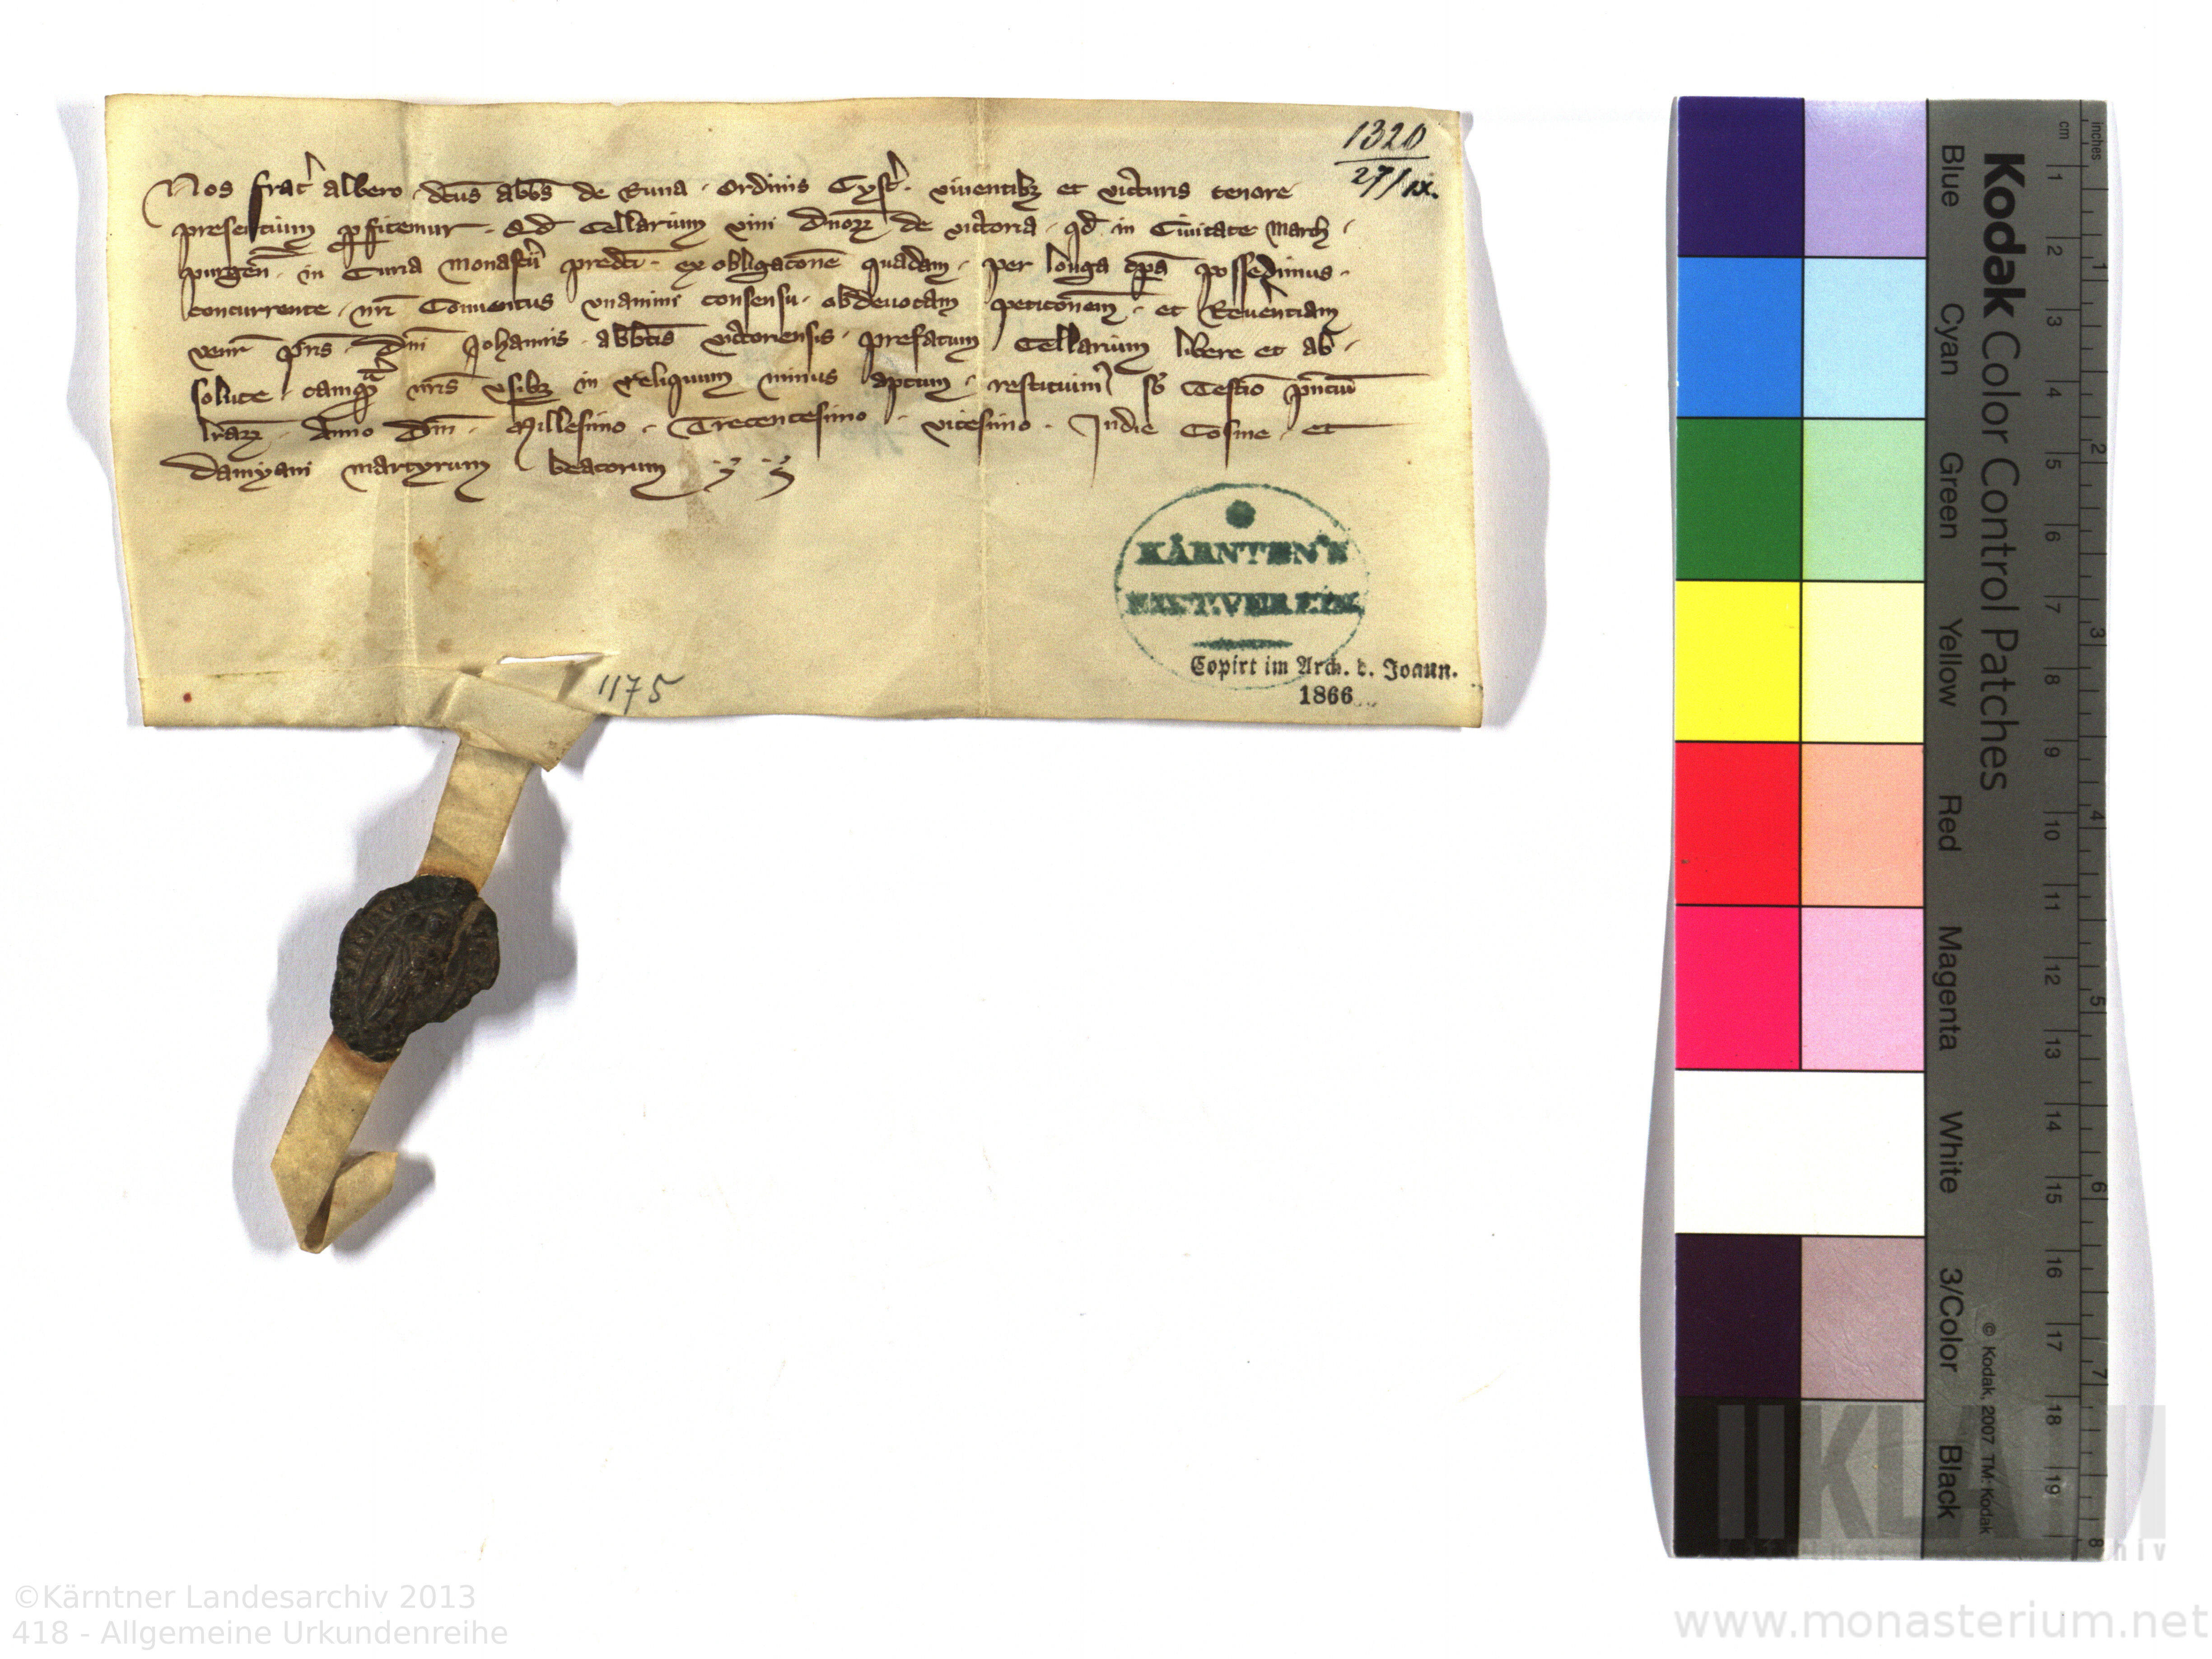 1320
27/IX.
Nos frat᾽ albero · dc̄us abb̄s de Runa · Ordinis Cyst᾽ · viuentibꝫ et victuris tenore
presentium ꝓfitemur · Qd̄ Cellarium vini dn̄oꝝ de victoria · qd̄ in Ciuitate March ·
purgen̄ · in Curia monast᾽ii predc̄i · ex obligatōne quadam · per longa tp̄a possedimus ·
concurrente · nr̄i Conuentus vnanimi consensu · ob deuotam petitōnem · et Reuerentiam
ven̄ pr̄is · dn̄i Johannis · abb̄tis victoriensis · prefatum Cellarium libere et ab ·
solute tamqᵃm nr̄is vsibꝫ in reliquum minus aptum · restituim᾽ sb̄ Testīo pn̄tium
lr̄aꝝ · Anno dn̄i · Millesimo · Trecentesimo · vicesimo · In die Cosme · et
damyani martyrum beatorum
KÄRNTEN'S
HIST.VEREIN
Copirt im Arch. d. Joann.
1866
1175
Kodak Color Control Patches
Blue Cyan Green Yellow Red Magenta White 3/Color Black
© Kodak, 2007 TM: Kodak
cm 1 2 3 4 5 6 7 8 9 10 11 12 13 14 15 16 17 18 19
inches 1 2 3 4 5 6 7 8
©Kärntner Landesarchiv 2013
418 - Allgemeine Urkundenreihe
www.monasterium.net